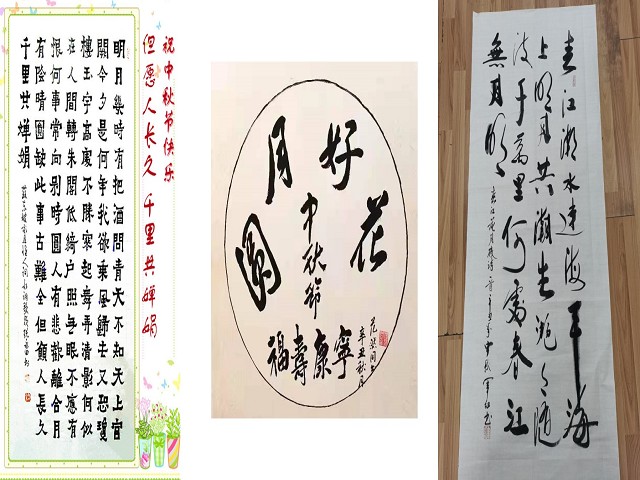 祝中秋节快乐
但愿人长久 千里共婵娟
明月幾時有把酒問青天不知天上宫
闕今夕是何年我欲乘風歸去又恐瓊
樓玉宇高處不勝寒起舞弄清影何似
在人間轉朱閣低綺户照無眠不應有
恨何事常向别時圓人有悲歡離合月
有陰晴圓缺此事古難全但願人長久
千里共嬋娟
花好月圓
中秋節
福壽康寧
辛丑秋月
春江潮水連海平海
上明月共潮生灧灧隨
波千萬里何處春江
無月明